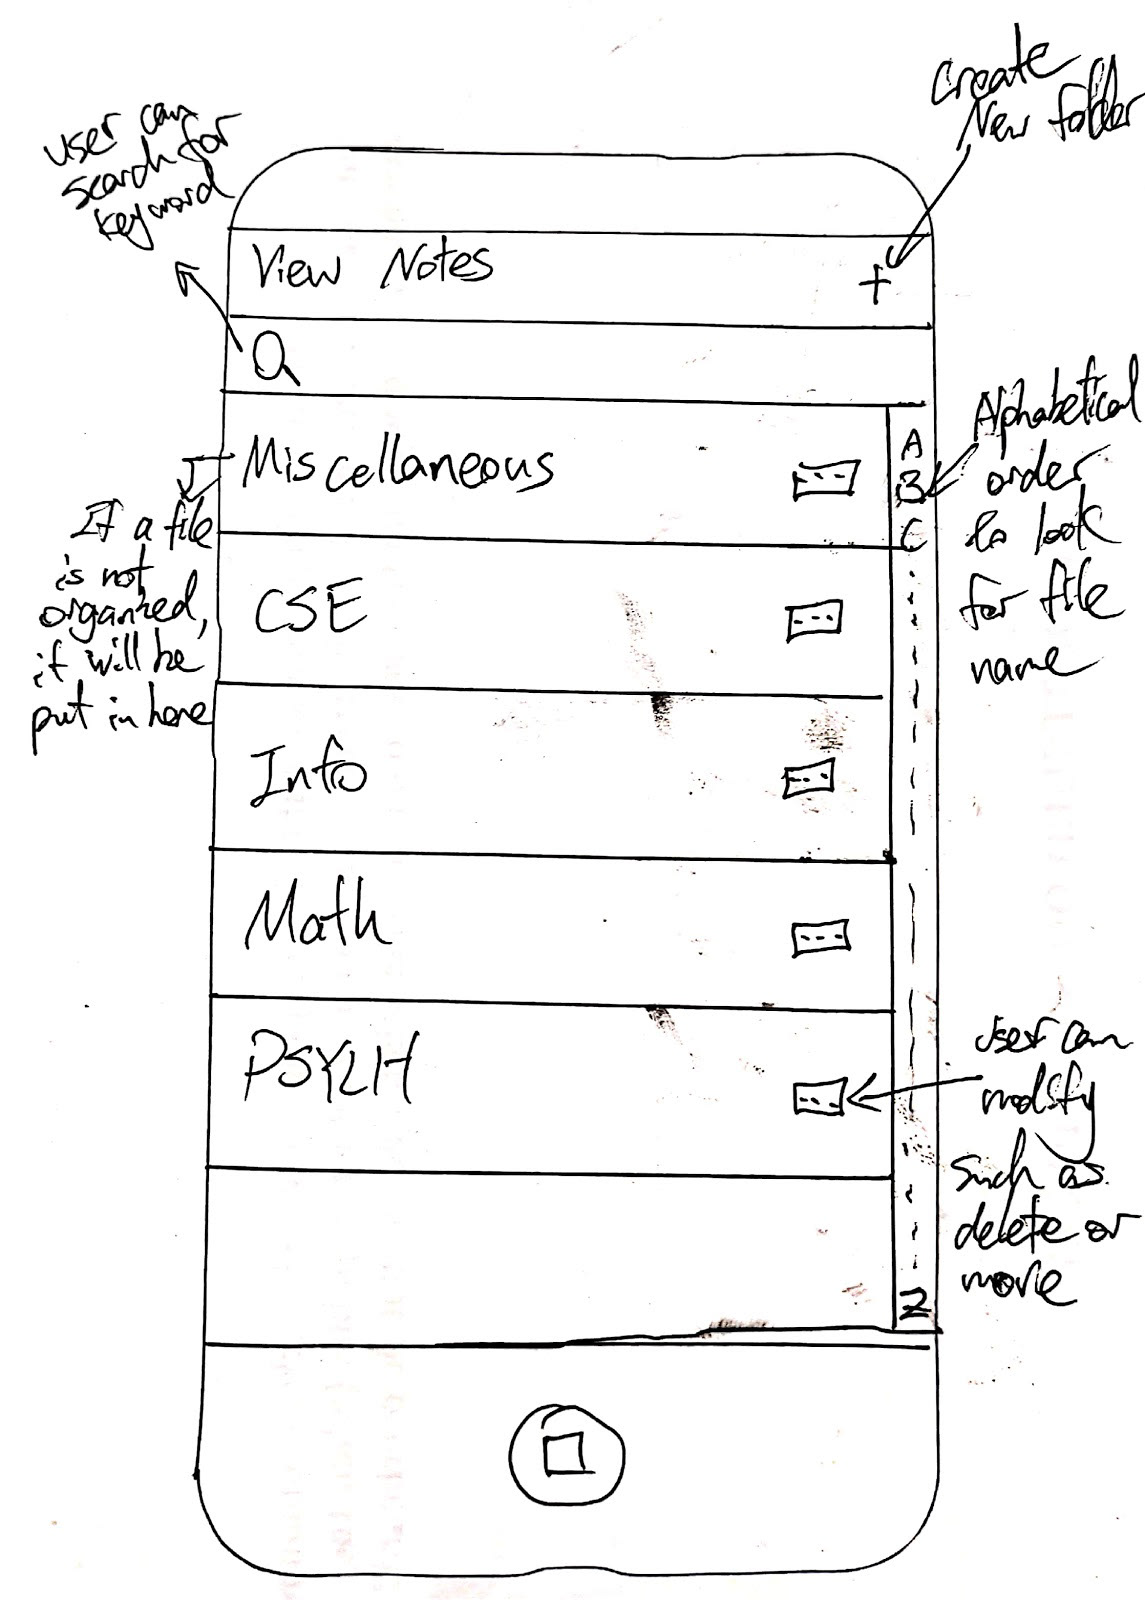 create
New folder
user can
search for
keyword
View Notes +
Miscellaneous
A
B
C
Z
Alphabetical
order
to look
for file
name
If a file
is not
organized,
it will be
put in here
CSE
Info
Math
PSYCH
user can
modify
such as
delete or
move